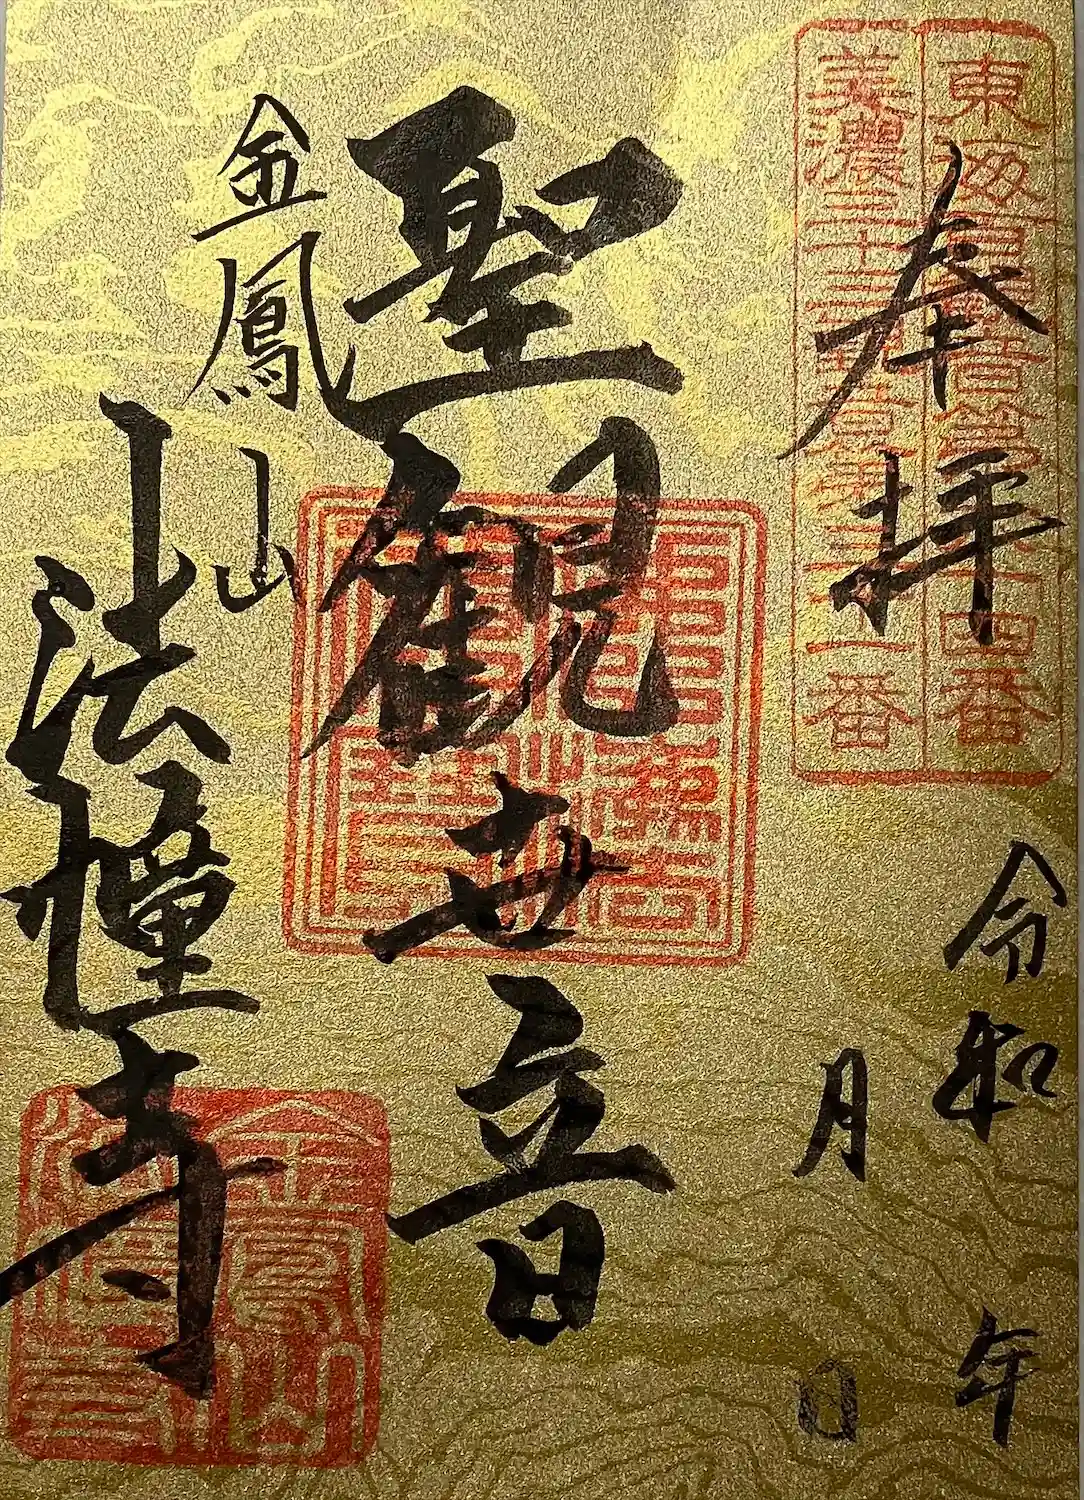 東海百観音第六十四番
美濃三十三
第三十一番
奉拝
令和 年
月 日
聖観世音
金鳳山
法幢寺
金鳳山
法幢寺